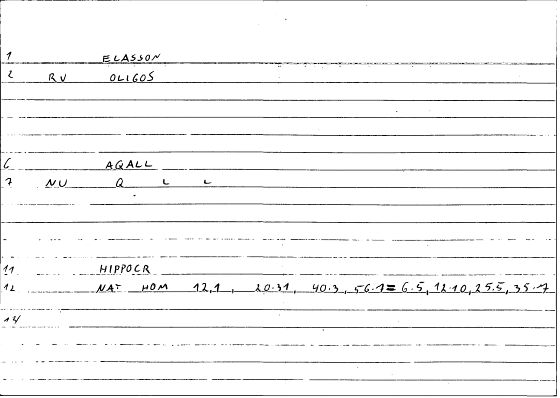 1 ELASSON
2 RV OLIGOS
6 AQALL
7 NU Q L L
11 HIPPOCR
12 NAT HOM 12,1, 20.31, 40.3, 56.1=6.5, 12.10, 25.5, 35.7
14